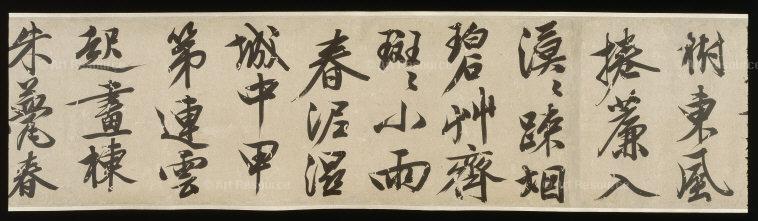 東風
捲簾入
漠〻疎烟
碧艸齊
斑〻小雨
春泥湿
城中甲
第連雲
起畫棟
朱甍春
© Art Resource